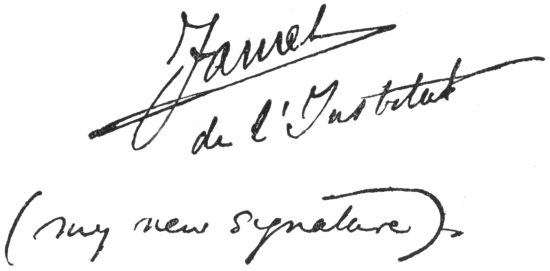 Jammes
de l'Institut
(my new signature).